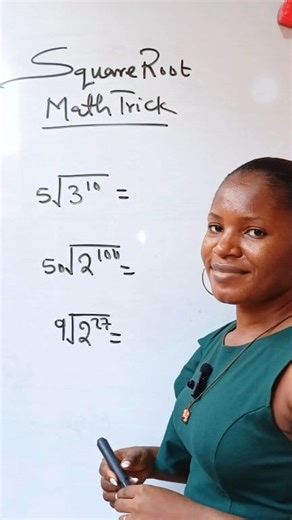 Square Root
Math Trick
5√3¹⁰ =
50√2¹⁰⁰ =
9√2²⁷ =